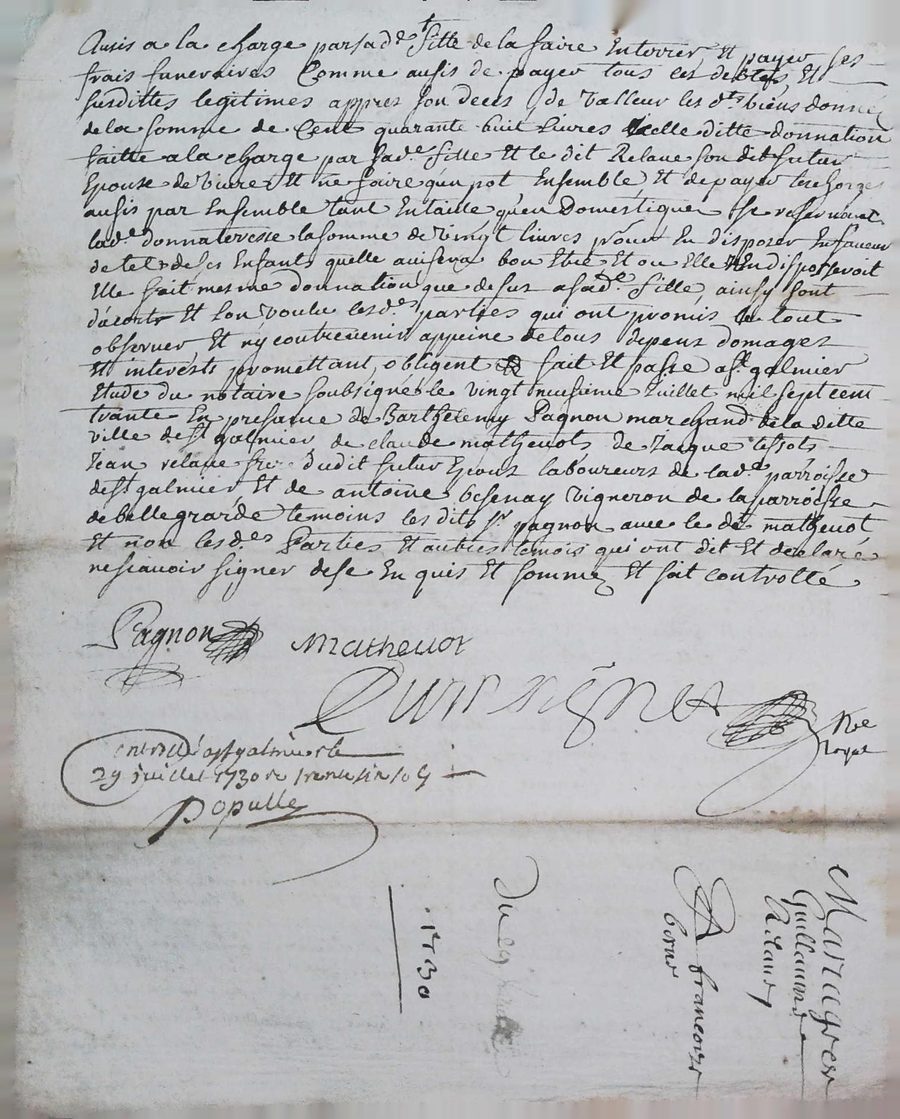 Ausis a la charge par sad.e fille de la faire Enterrer Et payer ses
frais funeraires Comme ausis de payer tous ces debtes Et
susdittes legitimes appres son deces de valleur les d.ts biens donné
de la somme de Cent quarante huit Livres Icelle ditte donnation
faitte a la charge par sad.e fille Et le dit Relaue son dit futur
Epouse de vivre Et ne faire qu'un pot Ensemble, Et de payer les charges
ausis par Ensemble tant En taille qu'en Domestique se reservant
lad.e donnateresse la somme de vingt livres pour En disposer En faveur
de tel de ses Enfants quelle avisera bon Etre Et ou Elle N'en disposeroit
Elle fait mesme donnation que desus a sad.e fille, ainsy sont
d'acorts Et l'on voulu les d.es parties qui ont promis le tout
observer Et n'y contrevenir appeine de tous depens domages
Et interests promettant, obligent fait Et passé a St galmier
Etude du notaire soubsigné le vingt neufieme Juillet mil sept cent
trante En presance de Barthelemy Pagnon marchand de la ditte
ville de St galmier de claude mathevot de Jacque tessot
Jean relaue frere dudit futur Epoux laboureurs de lad.e parroisse
de St galmier Et de antoine besenay vigneron de la parroisse
de bellegarde temoins les dits Sr pagnon avec le dt mathevot
Et non les d.es Parties Et autres temois qui ont dit Et declaré
ne scavoir signer de ce En quis Et sommé Et soit controllé
Pagnon Mathevot
Nre
royal
a St galmier le
29 juillet 1730 re trente six sols
Populle
Mariage
Guillaume
Relaue
A francoise
1730